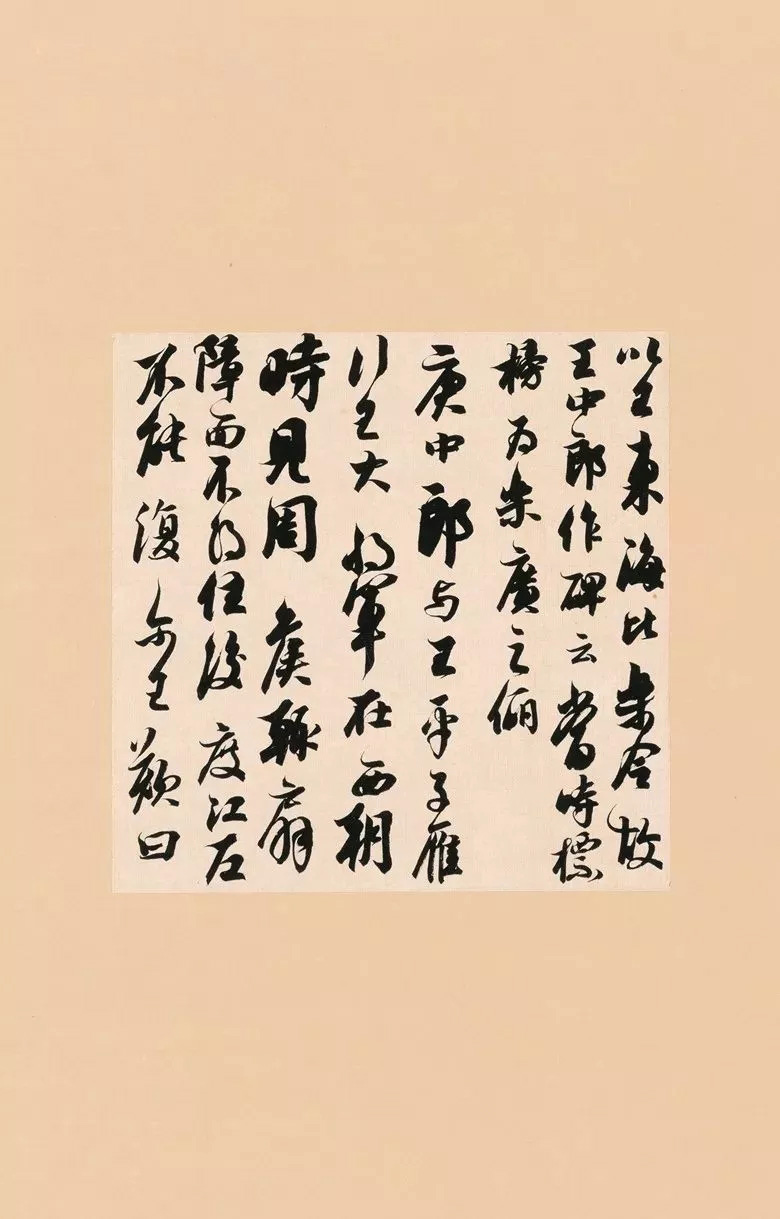 以王東海比樂令故
王中郎作碑云當時標
榜為樂廣之儷
庾中郎與王平子雁
行王大將軍在西朝
時見周侯輒扇
障面不得住後度江左
不能復尔王歎曰